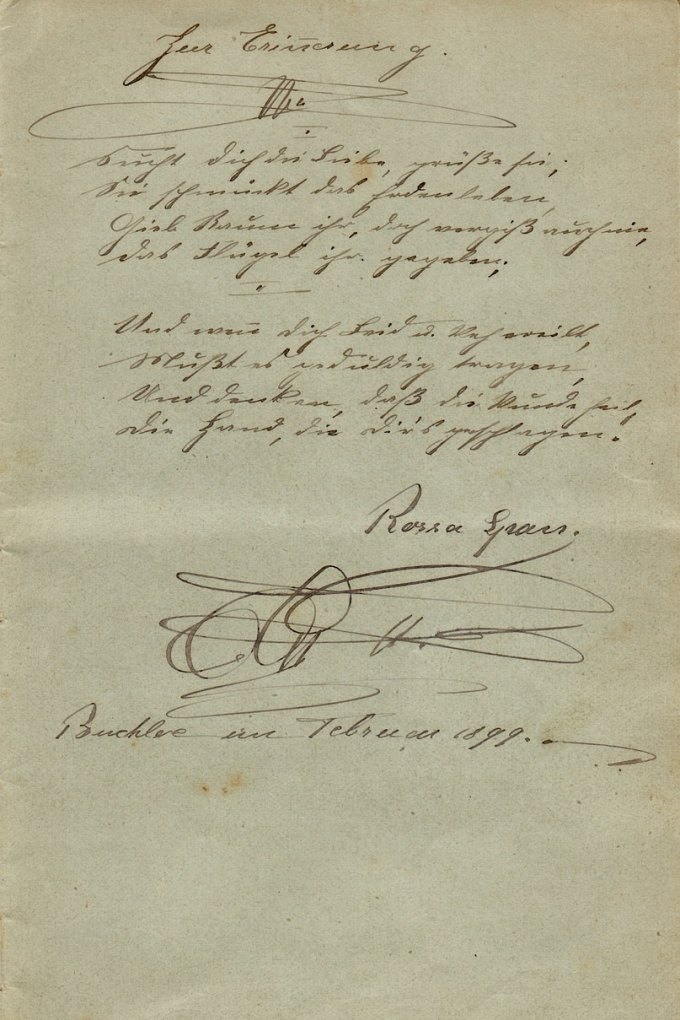 Zur Erinnerung.
Sucht dich die Liebe, grüße sie;
Sie schmückt das Erdenleben,
Gieb Raum ihr, doch vergiß auch nie,
das Flügel ihr gegeben;
Und wen̄ dich Leid u. Weh ereilt,
Mußt es geduldig tragen,
Und denken, daß die Wunde heilt,
Die Hand, die dir's geschlagen.
Rossa
Buchloe im Februar 1899.